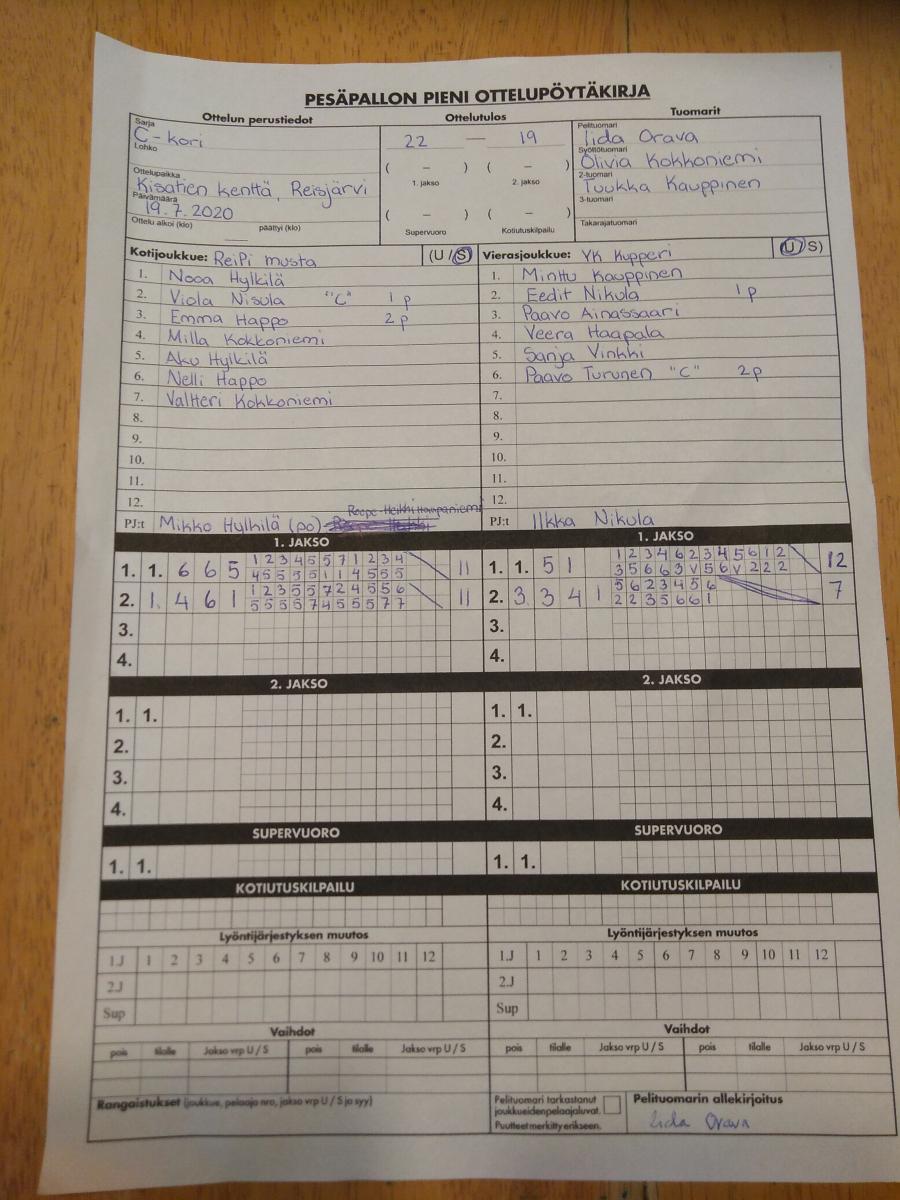 PESÄPALLON PIENI OTTELUPÖYTÄKIRJA
Ottelun perustiedot Ottelutulos Tuomarit
Sarja
C-kori
Lohko
Ottelupaikka
Kisatien kenttä, Reisjärvi
Päivämäärä
19.7.2020
Ottelu alkoi (klo) päättyi (klo)
22 — 19
( – ) ( – )
1. jakso 2. jakso
( – ) ( – )
Supervuoro Kotiutuskilpailu
Pelituomari
Iida Orava
Syöttötuomari
Olivia Kokkoniemi
2-tuomari
Tuukka Kauppinen
3-tuomari
Takarajatuomari
Kotijoukkue: ReiPi musta (U/S)
1. Nooa Hylkilä
2. Viola Nisula "C" 1p
3. Emma Happo 2p
4. Milla Kokkoniemi
5. Aku Hylkilä
6. Nelli Happo
7. Valtteri Kokkoniemi
8.
9.
10.
11.
12.
PJ:t Mikko Hylkilä (po)
Vierasjoukkue: YK Kupperi (U/S)
1. Minttu Kauppinen
2. Eedit Nikula 1p
3. Paavo Ainassaari
4. Veera Haapala
5. Sanja Vinkki
6. Paavo Turunen "C" 2p
7.
8.
9.
10.
11.
12.
PJ:t Ilkka Nikula
1. JAKSO 1. JAKSO
1. 1. 6 6 5 1 2 3 4 5 5 7 1 2 3 4 11
4 5 5 5 5 1 1 4 5 5 5
2. 1 4 6 1 1 2 3 5 5 7 2 4 5 5 6 11
5 5 5 5 7 4 5 5 5 7 7
3.
4.
1. 1. 5 1 1 2 3 4 6 2 3 4 5 6 1 2 12
3 5 6 6 3 V 5 6 V 2 2 2
2. 3 3 4 1 5 6 2 3 4 5 6 7
2 2 3 5 6 6 1
3.
4.
2. JAKSO 2. JAKSO
1. 1. 1. 1.
2. 2.
3. 3.
4. 4.
SUPERVUORO SUPERVUORO
1. 1. 1. 1.
KOTIUTUSKILPAILU KOTIUTUSKILPAILU
Lyöntijärjestyksen muutos Lyöntijärjestyksen muutos
1.J 1 2 3 4 5 6 7 8 9 10 11 12 1.J 1 2 3 4 5 6 7 8 9 10 11 12
2.J 2.J
Sup Sup
Vaihdot Vaihdot
pois tilalle Jakso vrp U / S pois tilalle Jakso vrp U / S pois tilalle Jakso vrp U / S pois tilalle Jakso vrp U / S
Rangaistukset (joukkue, pelaaja nro, jakso vrp U / S ja syy)
Pelituomari tarkastanut
joukkueidenpelaajaluvat.
Puutteet merkitty erikseen.
Pelituomarin allekirjoitus
Iida Orava